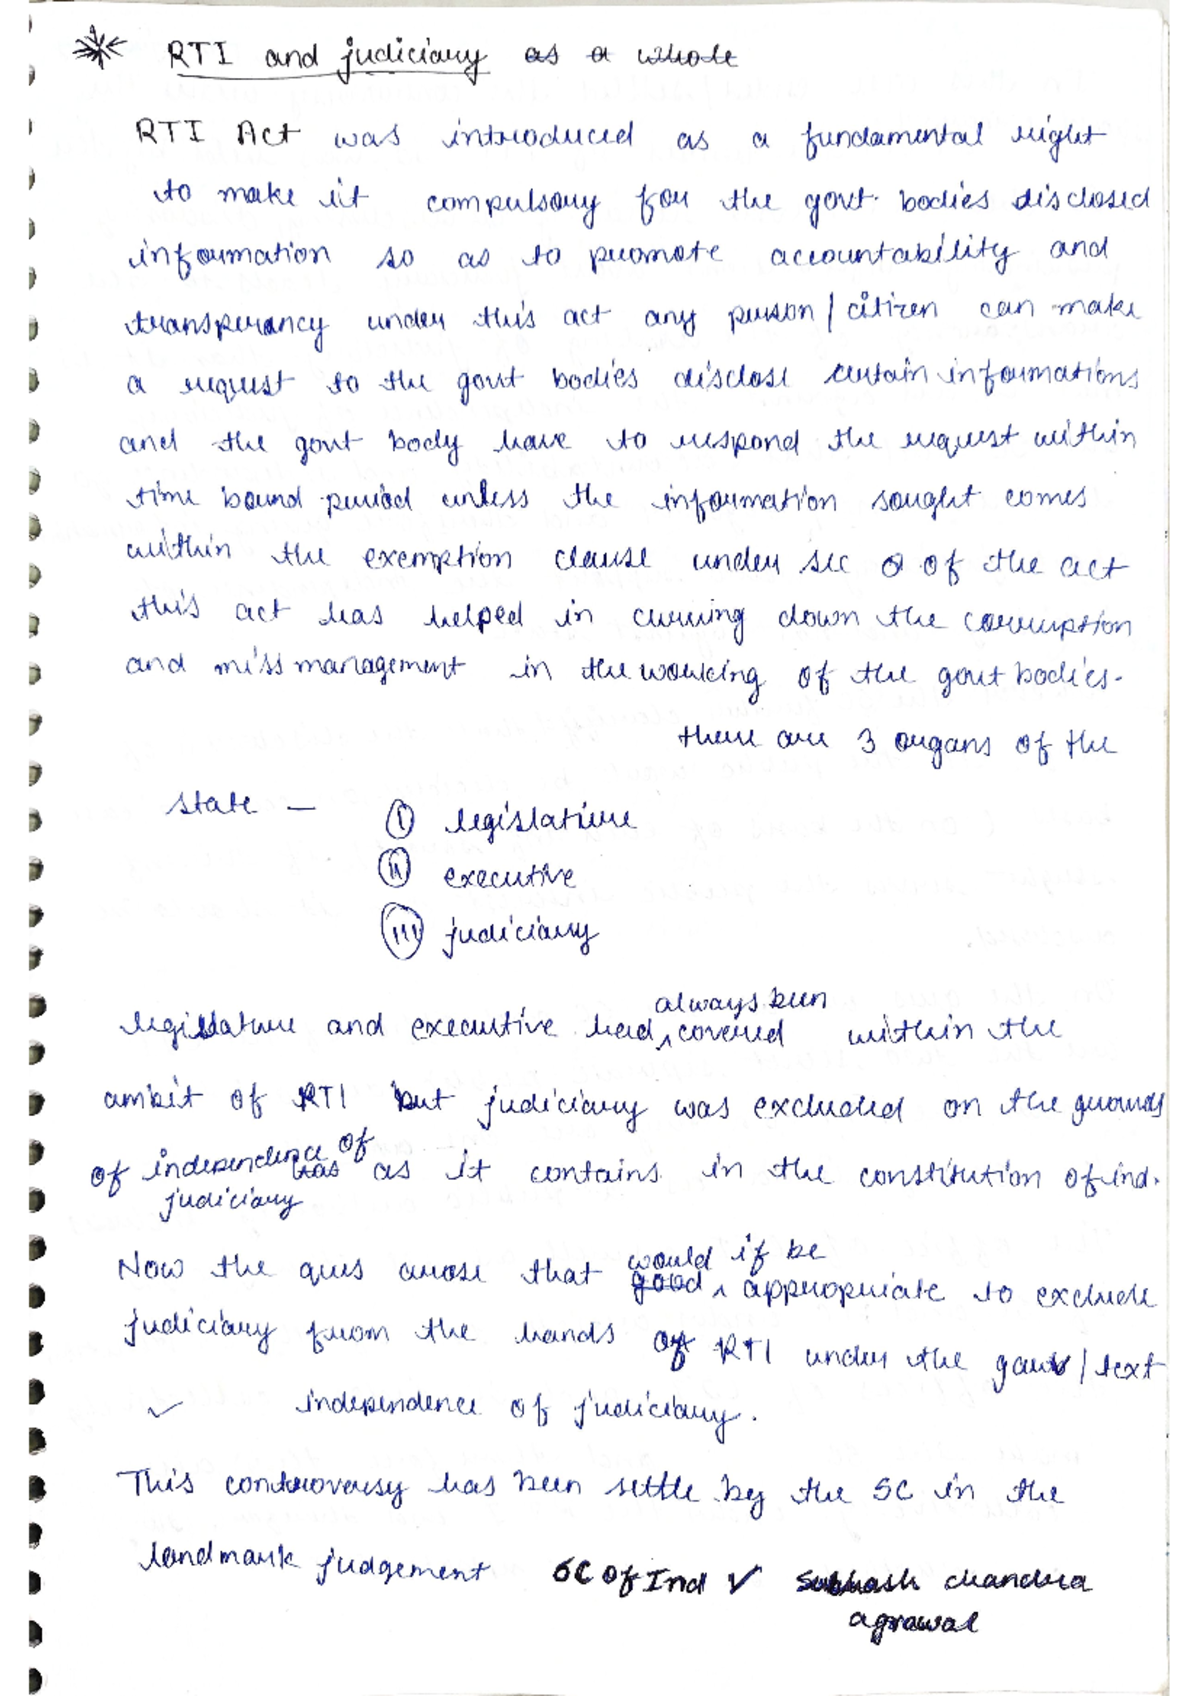 RTI and judiciary as a whole
RTI Act was introduced as a fundamental right
to make it compulsory for the govt. bodies disclosed
information so as to promote accountability and
transperancy under this act any person / citizen can make
a request to the govt bodies disclose certain informations
and the govt body have to respond the request within
time bound period unless the information sought comes
within the exemption clause under sec 8 of the act
this act has helped in curring down the corruption
and miss management in the working of the govt bodies.
there are 3 organs of the
state —
(i) legislature
(ii) executive
(iii) judiciary
always been
legislature and executive had covered within the
ambit of RTI but judiciary was excluded on the grounds
of independence of has as it contains in the constitution of ind.
judiciary
would it be
Now the ques arose that good appropriate to exclude
judiciary from the hands of RTI under the garb / text
independence of judiciary.
This controversy has been settle by the SC in the
landmark judgement SC of Ind V Subhash chandra
agrawal